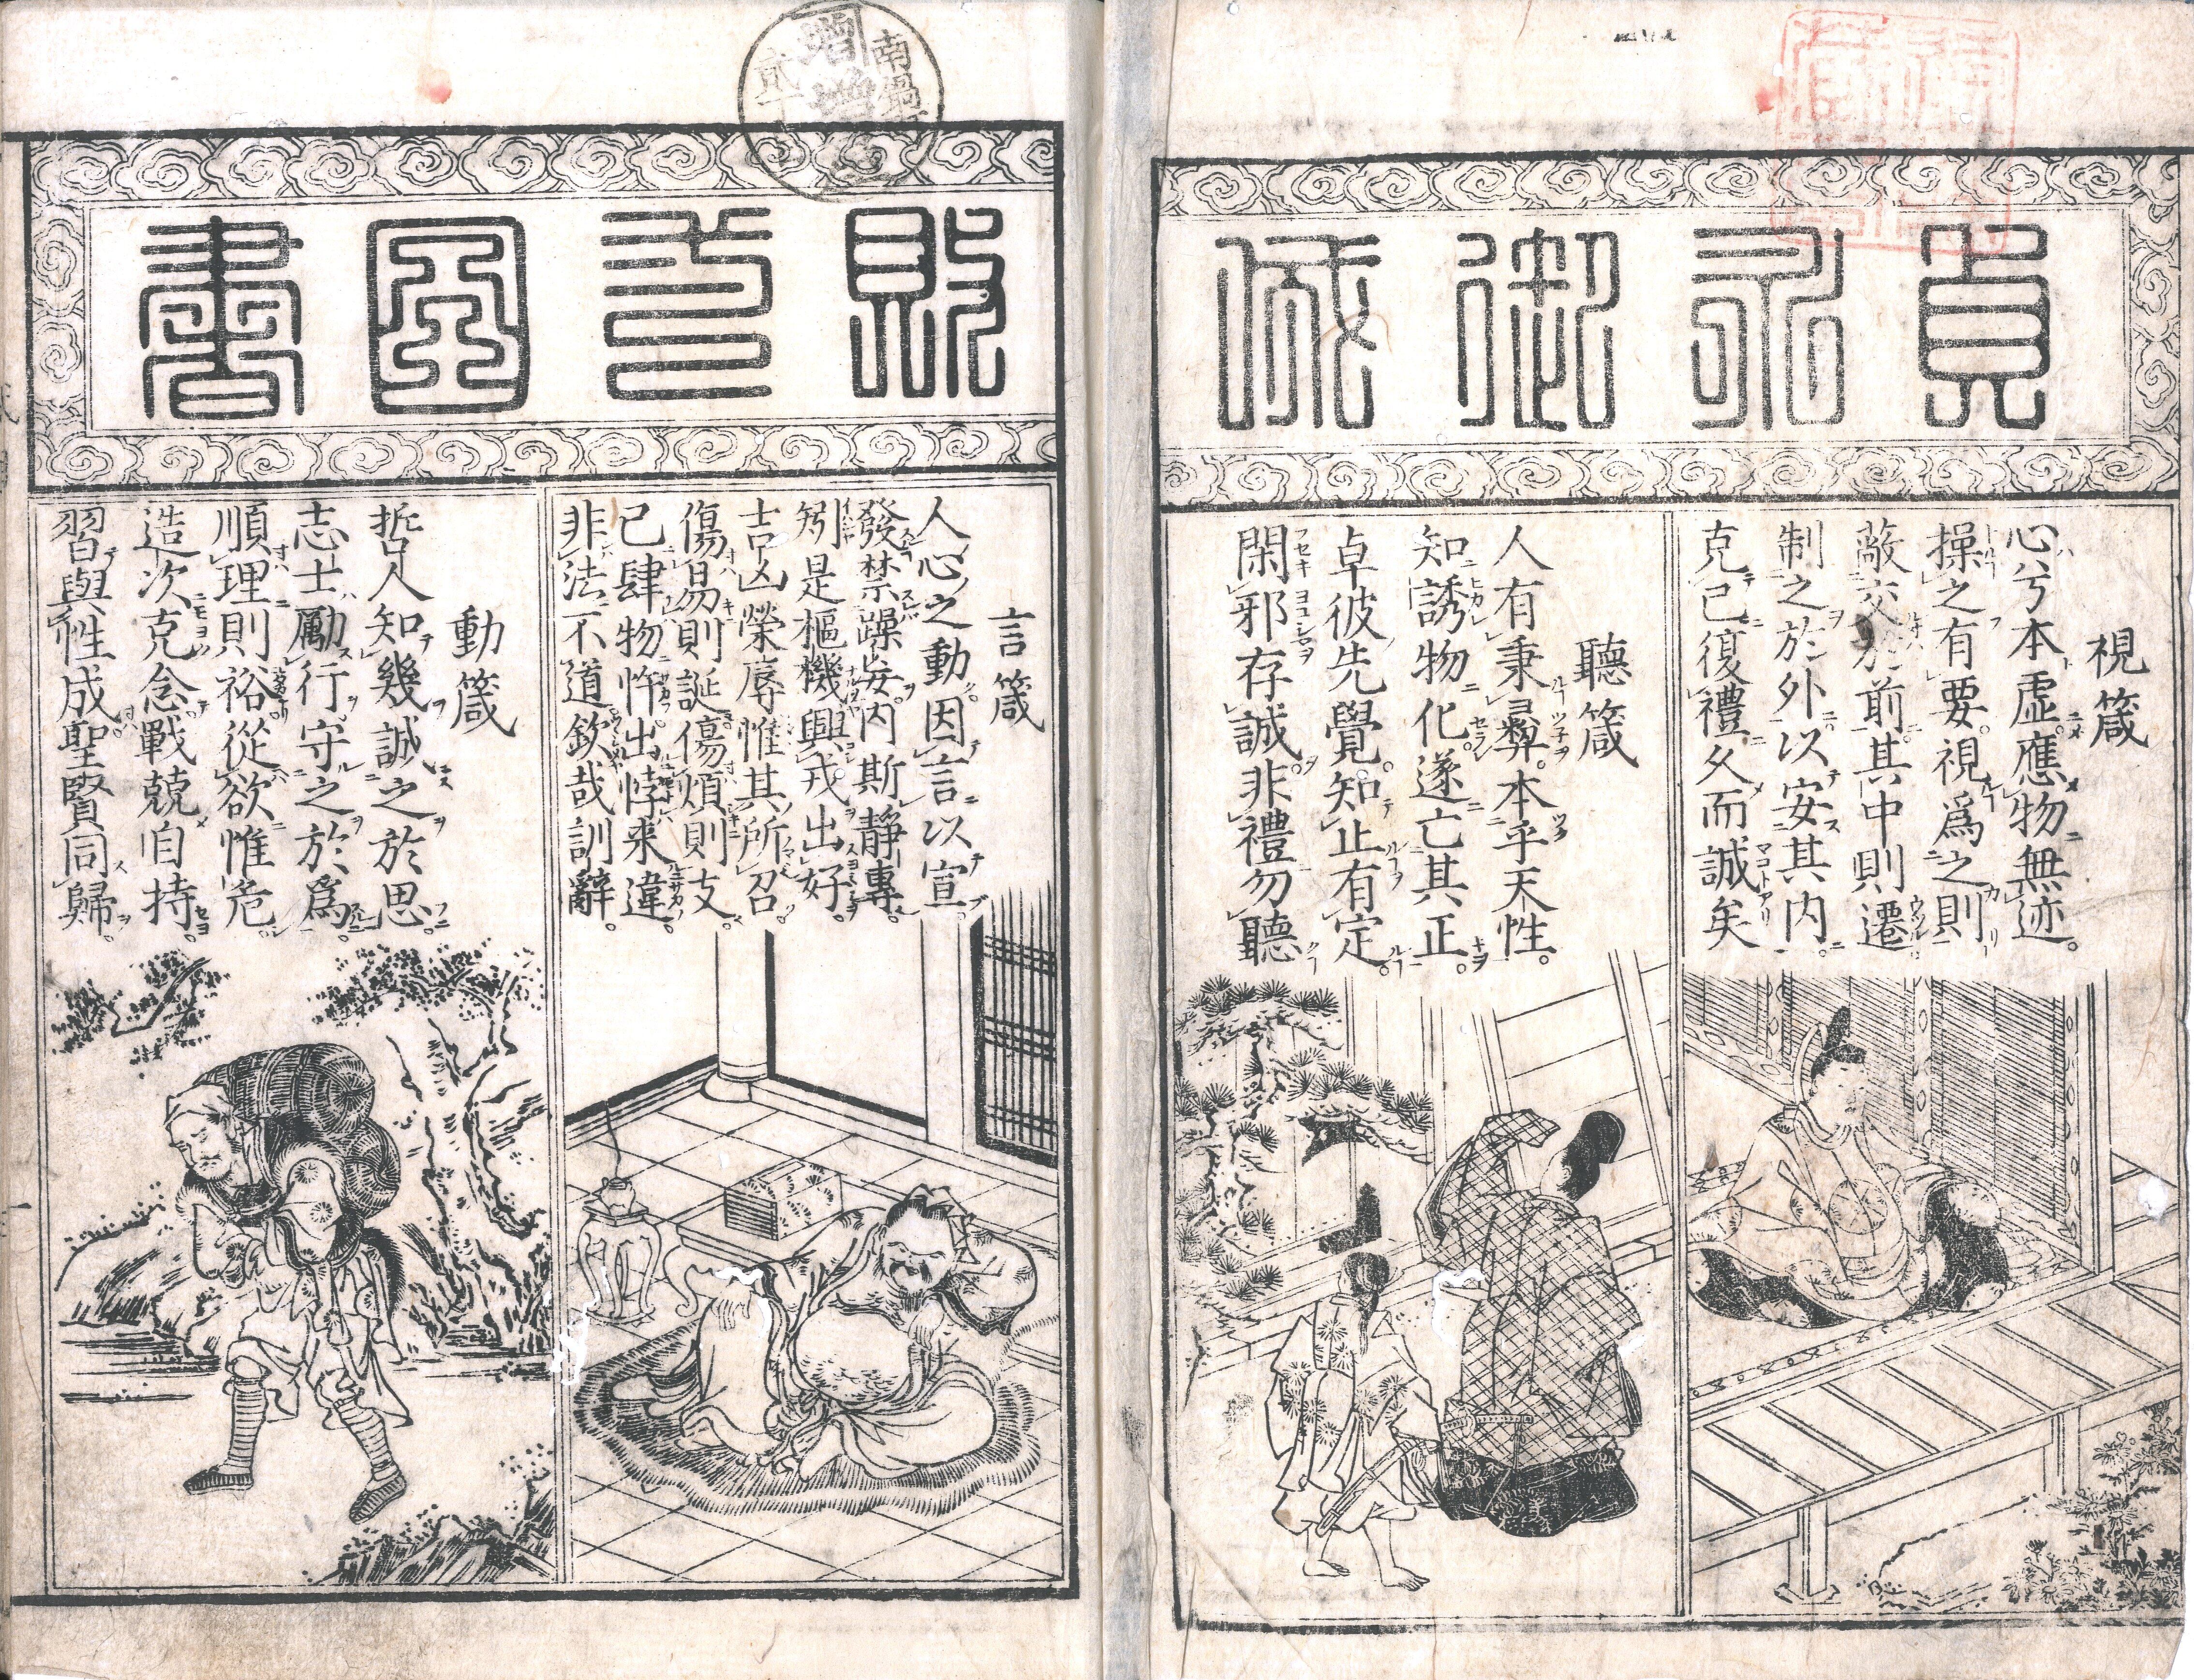 貞永御成
敗式圖書
視箴
心兮本虛。應物無迹。
操之有要。視爲之則
蔽交於前。其中則遷。
制之於外。以安其内。
克己復禮久而誠矣
聽箴
人有秉彛。本乎天性。
知誘物化。遂亡其正。
卓彼先覺。知止有定。
閑邪存誠。非禮勿聽
言箴
人心之動。因言以宣。
發禁躁妄。内斯靜專。
矧是樞機。興戎出好。
吉凶榮辱惟其所召。
傷易則誕傷煩則支。
已肆物忤出悖来違。
非法不道欽哉訓辭。
動箴
哲人知幾誠之於思。
志士勵行守之於爲。
順理則裕從欲惟危。
造次克念戰兢自持。
習與性成聖賢同歸。